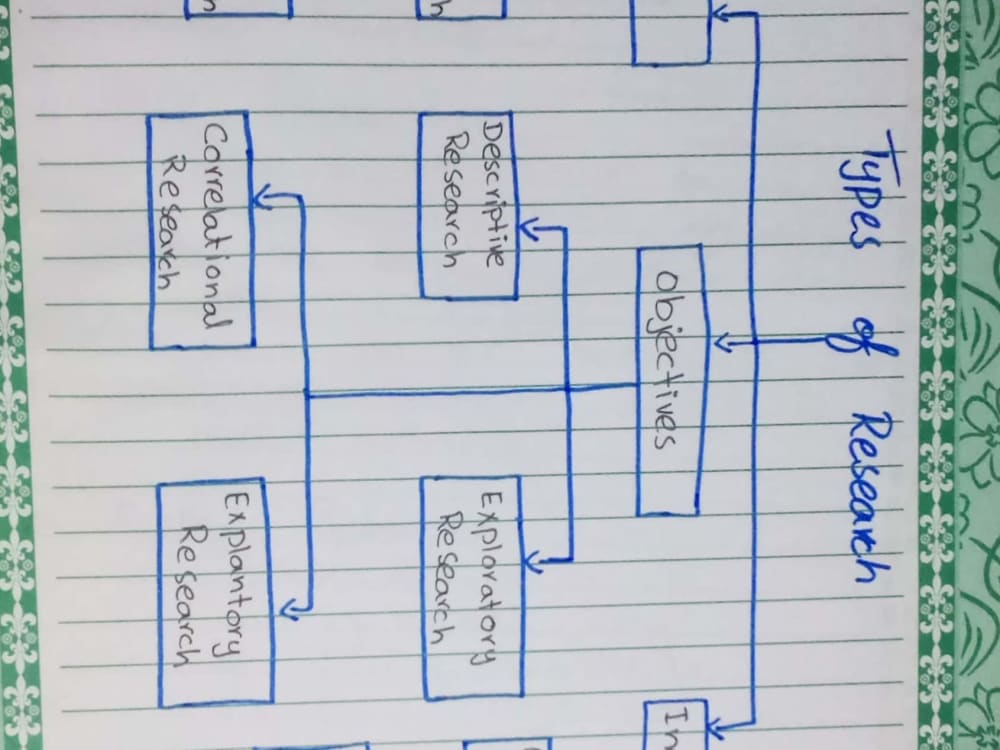 Types of Research
Objectives
In
Descriptive
Research
Exploratory
Research
Correlational
Research
Explantory
Research